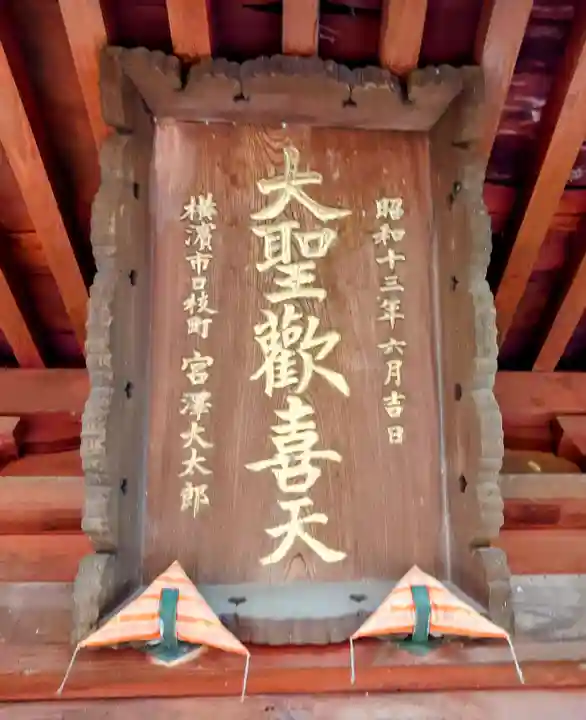 昭和十三年六月吉日
大聖歡喜天
横濱市日枝町 宮澤大太郎